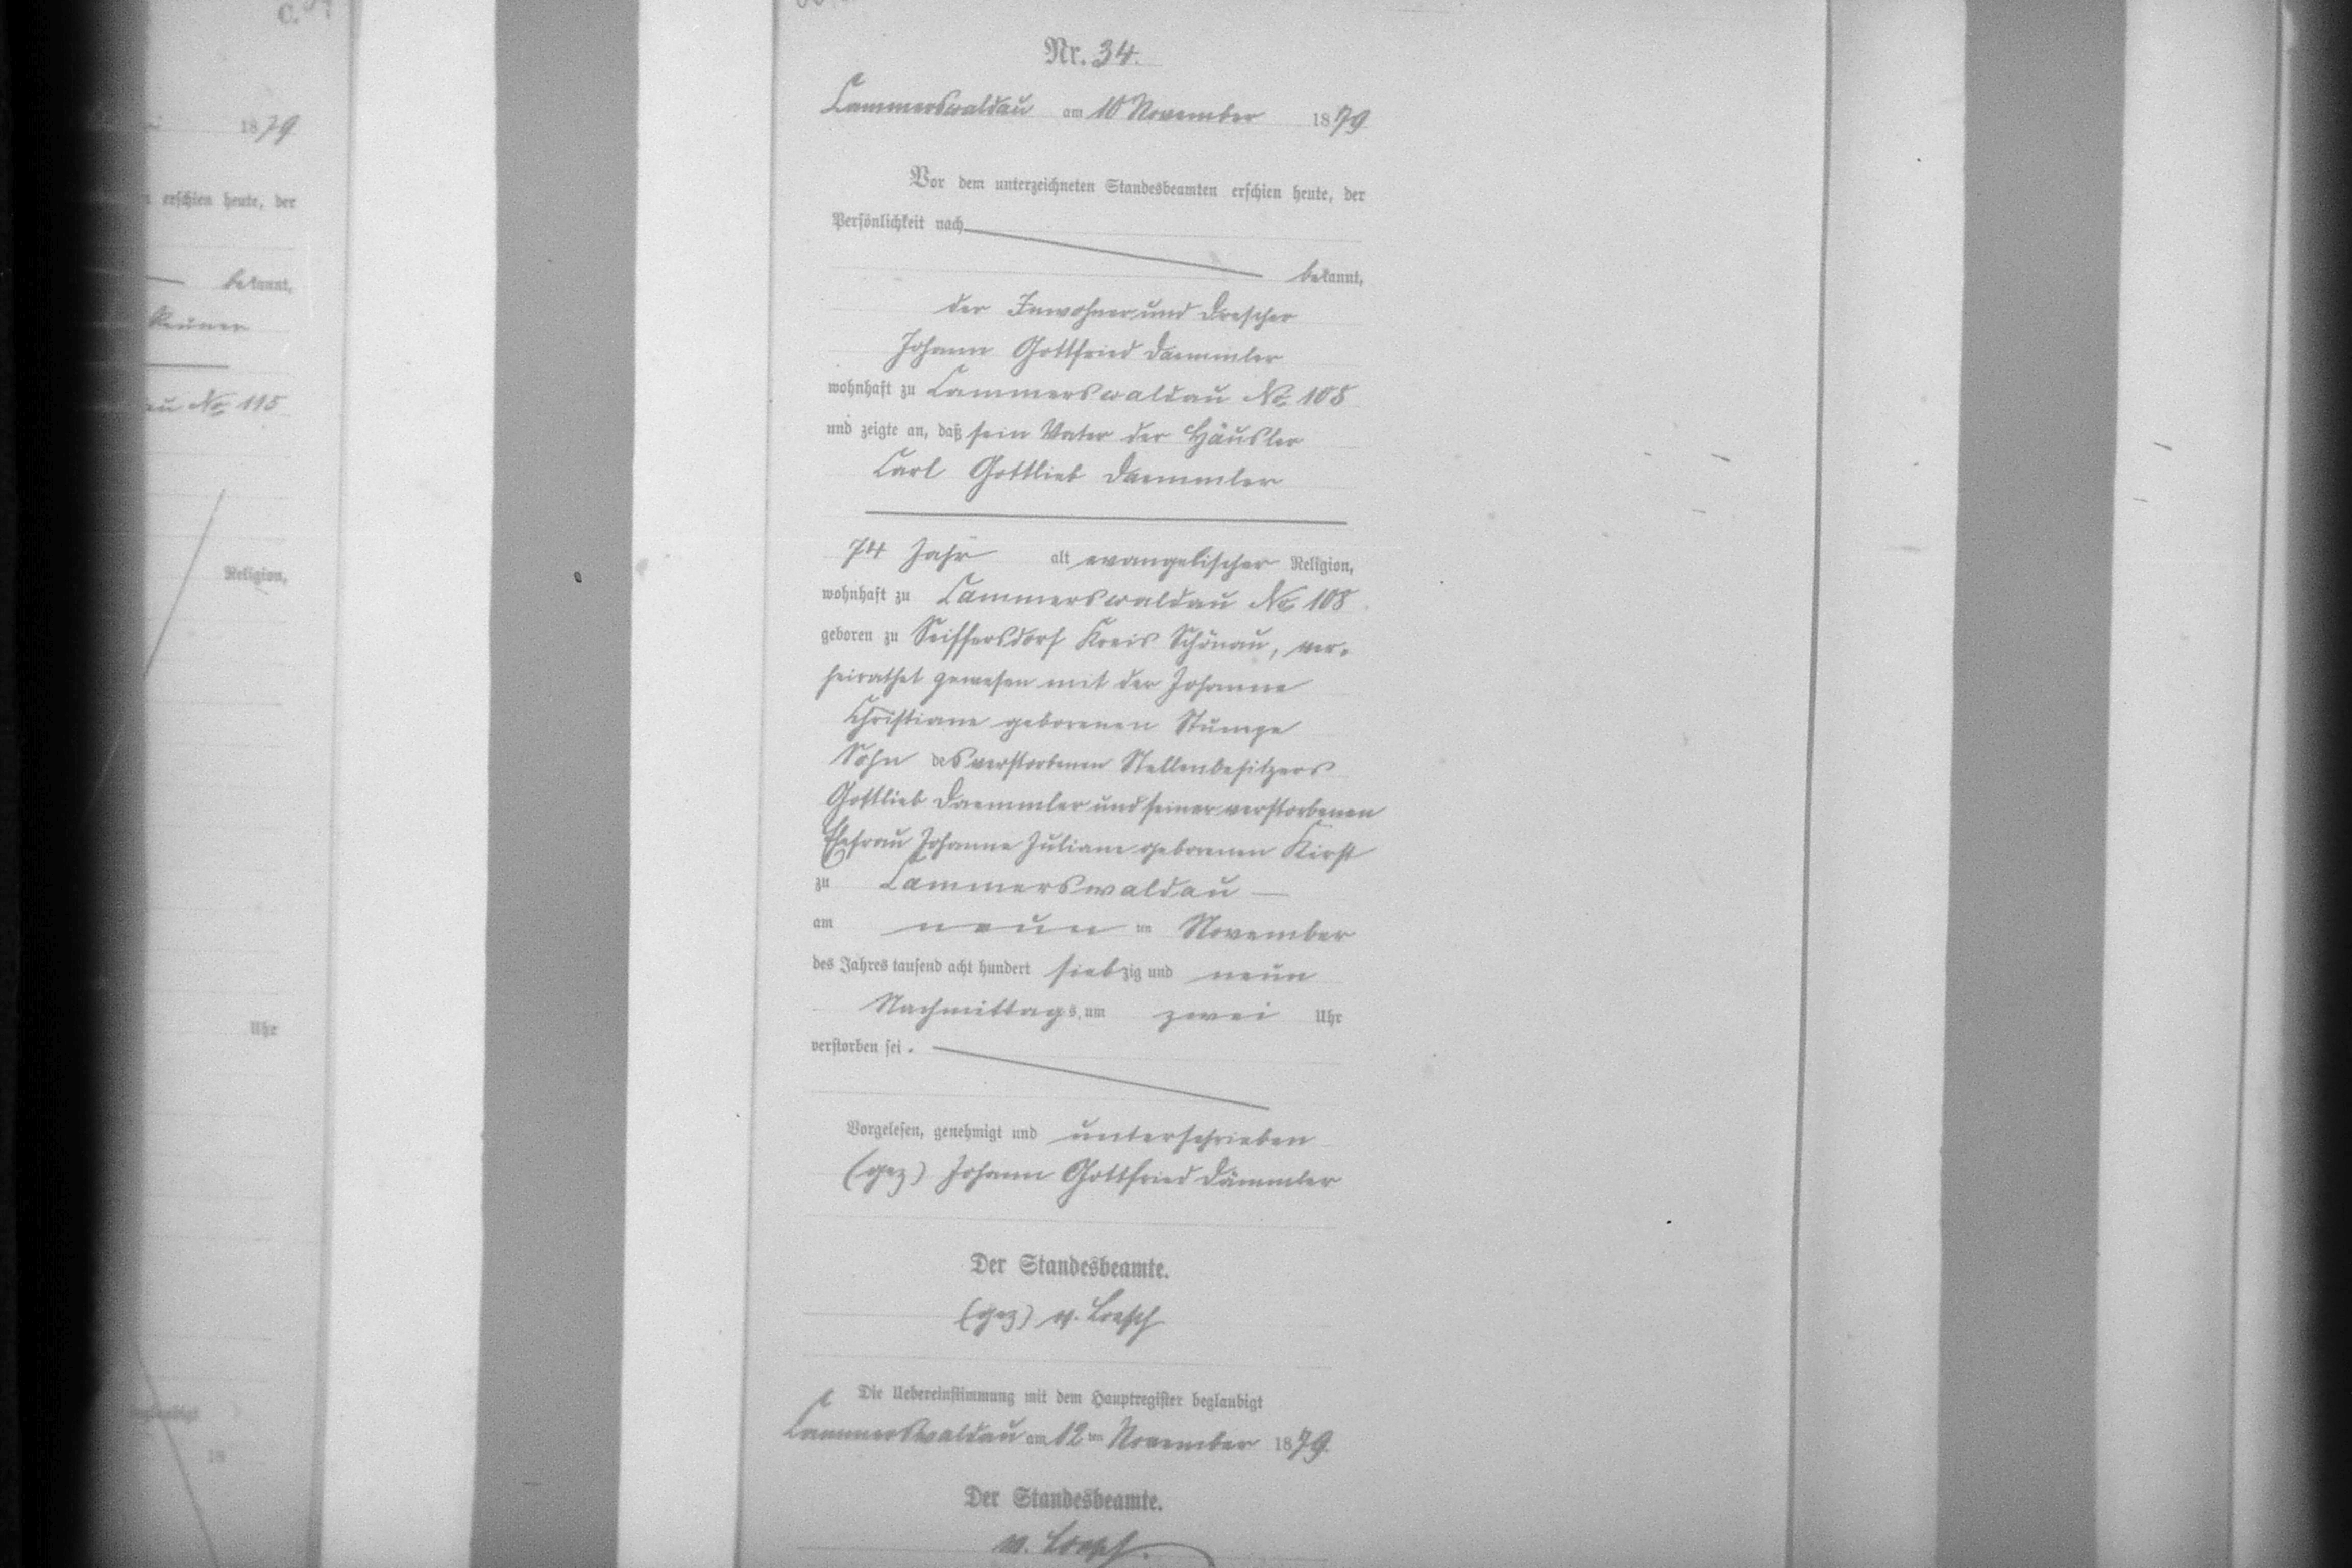 C.
1879
erschien heute, der
bekannt,
No 115
Religion,
Uhr
18
Nr. 34.
Cammerswaldau am 10 November 1879
Vor dem unterzeichneten Standesbeamten erschien heute, der
Persönlichkeit nach
bekannt,
der Inwohner und Drescher
Johann Gottfried Daemmler
wohnhaft zu Cammerswaldau No. 108
und zeigte an, daß sein Vater der Häusler
Carl Gottlieb Daemmler
74 Jahr alt evangelischer Religion,
wohnhaft zu Cammerswaldau No 108
geboren zu Seiffersdorf Kreis Schönau, ver-
heirathet gewesen mit der Johanne
Christiane geborenen Stumpe
Sohn des verstorbenen Stellenbesitzers
Gottlieb Daemmler und seiner verstorbenen
Ehefrau Johanne Juliane geborenen Kirst
zu Cammerswaldau
am neunten November
des Jahres tausend acht hundert siebzig und neun
Nachmittags um zwei Uhr
verstorben sei.
Vorgelesen, genehmigt und unterschrieben
(gez) Johann Gottfried Dämmler
Der Standesbeamte.
(gez) v. Loesch
Die Uebereinstimmung mit dem Hauptregister beglaubigt
Cammerswaldau am 12ten November 1879.
Der Standesbeamte.
v. Loesch.